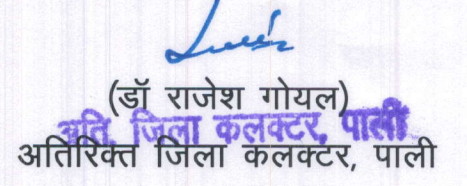 (डॉ राजेश गोयल)
अति. जिला कलक्टर, पाली
अतिरिक्त जिला कलक्टर, पाली